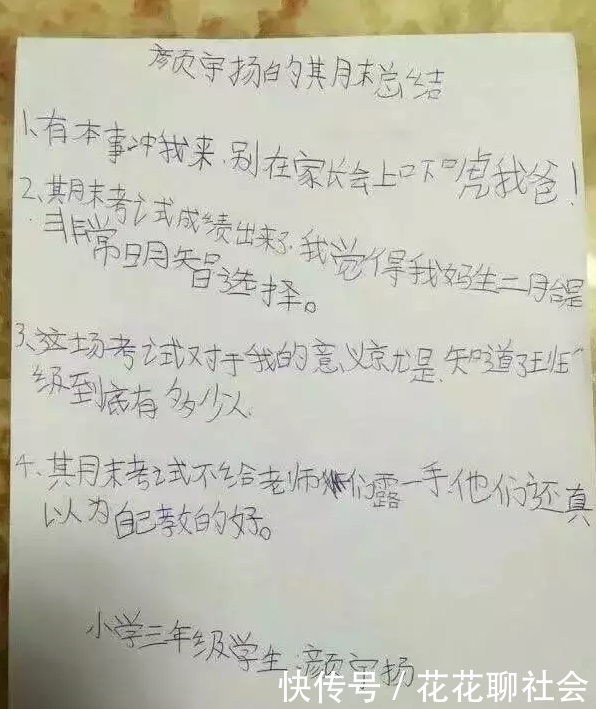 颜宇扬的其月末总结
1、有本事冲我来,别在家长会上吓唬我爸!
2、其月末考试成绩出来了,我觉得我妈生二月台是
非常明智选择。
3、这场考试对于我的意义就是,知道了班
级到底有多少人
4、其月末考试不给老师们露一手,他们还真
以为自己教的好。
小学三年级学生:颜宇扬
快传号/花花聊社会